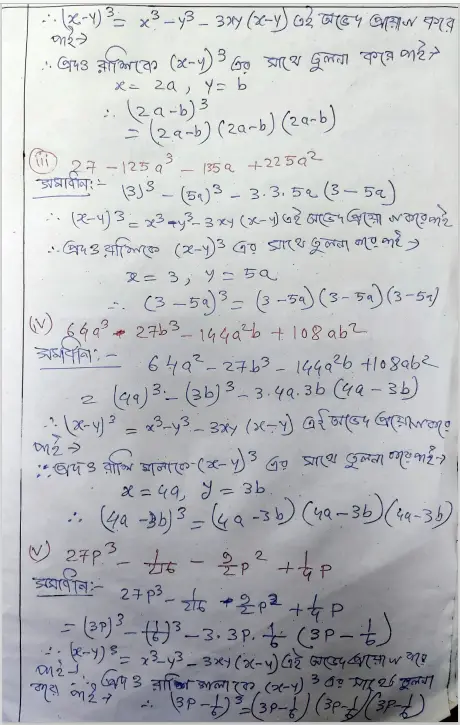 ∴ (x-y)³ = x³-y³-3xy(x-y) এই অভেদ প্রয়োগ করে
পাই→
∴ প্রদত্ত রাশিকে (x-y)³ এর সাথে তুলনা করে পাই→
x = 2a, y = b
∴ (2a-b)³
= (2a-b) (2a-b) (2a-b)
(iii) 27 - 125a³ - 135a + 225a²
সমাধান:- (3)³ - (5a)³ - 3.3.5a (3-5a)
∴ (x-y)³ = x³-y³-3xy (x-y) এই অভেদ প্রয়োগ করে পাই
∴ প্রদত্ত রাশিকে (x-y)³ এর সাথে তুলনা করে পাই→
x = 3, y = 5a
∴ (3-5a)³ = (3-5a) (3-5a) (3-5a)
(iv) 64a³ - 27b³ - 144a²b + 108ab²
সমাধান:- 64a² - 27b³ - 144a²b + 108ab²
= (4a)³ - (3b)³ - 3.4a.3b (4a-3b)
∴ (x-y)³ = x³-y³-3xy (x-y) এই অভেদ প্রয়োগ করে
পাই→
∴ প্রদত্ত রাশি মালাকে (x-y)³ এর সাথে তুলনা করে পাই→
x = 4a, y = 3b
∴ (4a-3b)³ = (4a-3b) (4a-3b) (4a-3b)
(v) 27p³ - 1/216 - 9/2p² + 1/4p
সমাধান:-
27p³ - 1/216 - 9/2p² + 1/4p
= (3p)³ - (1/6)³ - 3.3p.1/6 (3p-1/6)
∴ (x-y)³ = x³-y³-3xy (x-y) এই অভেদ প্রয়োগ করে
পাই→ ∴ প্রদত্ত রাশি মালাকে (x-y)³ এর সাথে তুলনা
করে পাই→ ∴ (3p-1/6)³ = (3p-1/6) (3p-1/6) (3p-1/6)